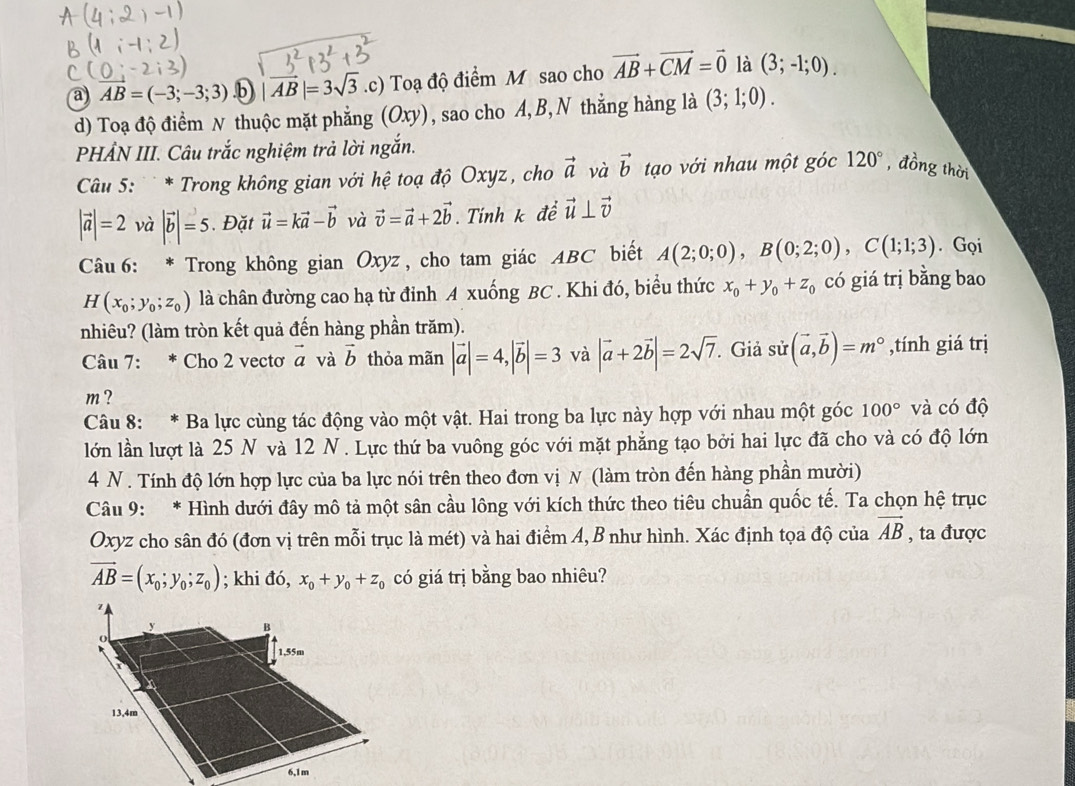 A(4;2;-1)
B(1;-1;2)
C(0;-2;3)
√3²+3²+3²
a) $\overrightarrow{AB}=(-3;-3;3)$ .b) $|\overrightarrow{AB}|=3\sqrt{3}$ .c) Toạ độ điểm M sao cho $\overrightarrow{AB}+\overrightarrow{CM}=\vec{0}$ là (3; -1;0).
d) Toạ độ điểm N thuộc mặt phẳng (Oxy), sao cho A,B,N thẳng hàng là (3; 1;0).
PHẦN III. Câu trắc nghiệm trả lời ngắn.
Câu 5: * Trong không gian với hệ toạ độ Oxyz, cho $\vec{a}$ và $\vec{b}$ tạo với nhau một góc 120°, đồng thời
$|\vec{a}|=2$ và $|\vec{b}|=5$. Đặt $\vec{u}=k\vec{a}-\vec{b}$ và $\vec{v}=\vec{a}+2\vec{b}$. Tính k để $\vec{u}\perp\vec{v}$
Câu 6: * Trong không gian Oxyz, cho tam giác ABC biết A(2;0;0), B(0;2;0), C(1;1;3). Gọi
$H(x_0;y_0;z_0)$ là chân đường cao hạ từ đỉnh A xuống BC. Khi đó, biểu thức $x_0+y_0+z_0$ có giá trị bằng bao
nhiêu? (làm tròn kết quả đến hàng phần trăm).
Câu 7: * Cho 2 vectơ $\vec{a}$ và $\vec{b}$ thỏa mãn $|\vec{a}|=4,|\vec{b}|=3$ và $|\vec{a}+2\vec{b}|=2\sqrt{7}$. Giả sử $(\vec{a},\vec{b})=m°$ ,tính giá trị
m ?
Câu 8: * Ba lực cùng tác động vào một vật. Hai trong ba lực này hợp với nhau một góc 100° và có độ
lớn lần lượt là 25 N và 12 N. Lực thứ ba vuông góc với mặt phẳng tạo bởi hai lực đã cho và có độ lớn
4 N. Tính độ lớn hợp lực của ba lực nói trên theo đơn vị N (làm tròn đến hàng phần mười)
Câu 9: * Hình dưới đây mô tả một sân cầu lông với kích thức theo tiêu chuẩn quốc tế. Ta chọn hệ trục
Oxyz cho sân đó (đơn vị trên mỗi trục là mét) và hai điểm A, B như hình. Xác định tọa độ của $\overrightarrow{AB}$, ta được
$\overrightarrow{AB}=(x_0;y_0;z_0)$; khi đó, $x_0+y_0+z_0$ có giá trị bằng bao nhiêu?
z
y
B
O
1,55m
x
A
13,4m
6,1m